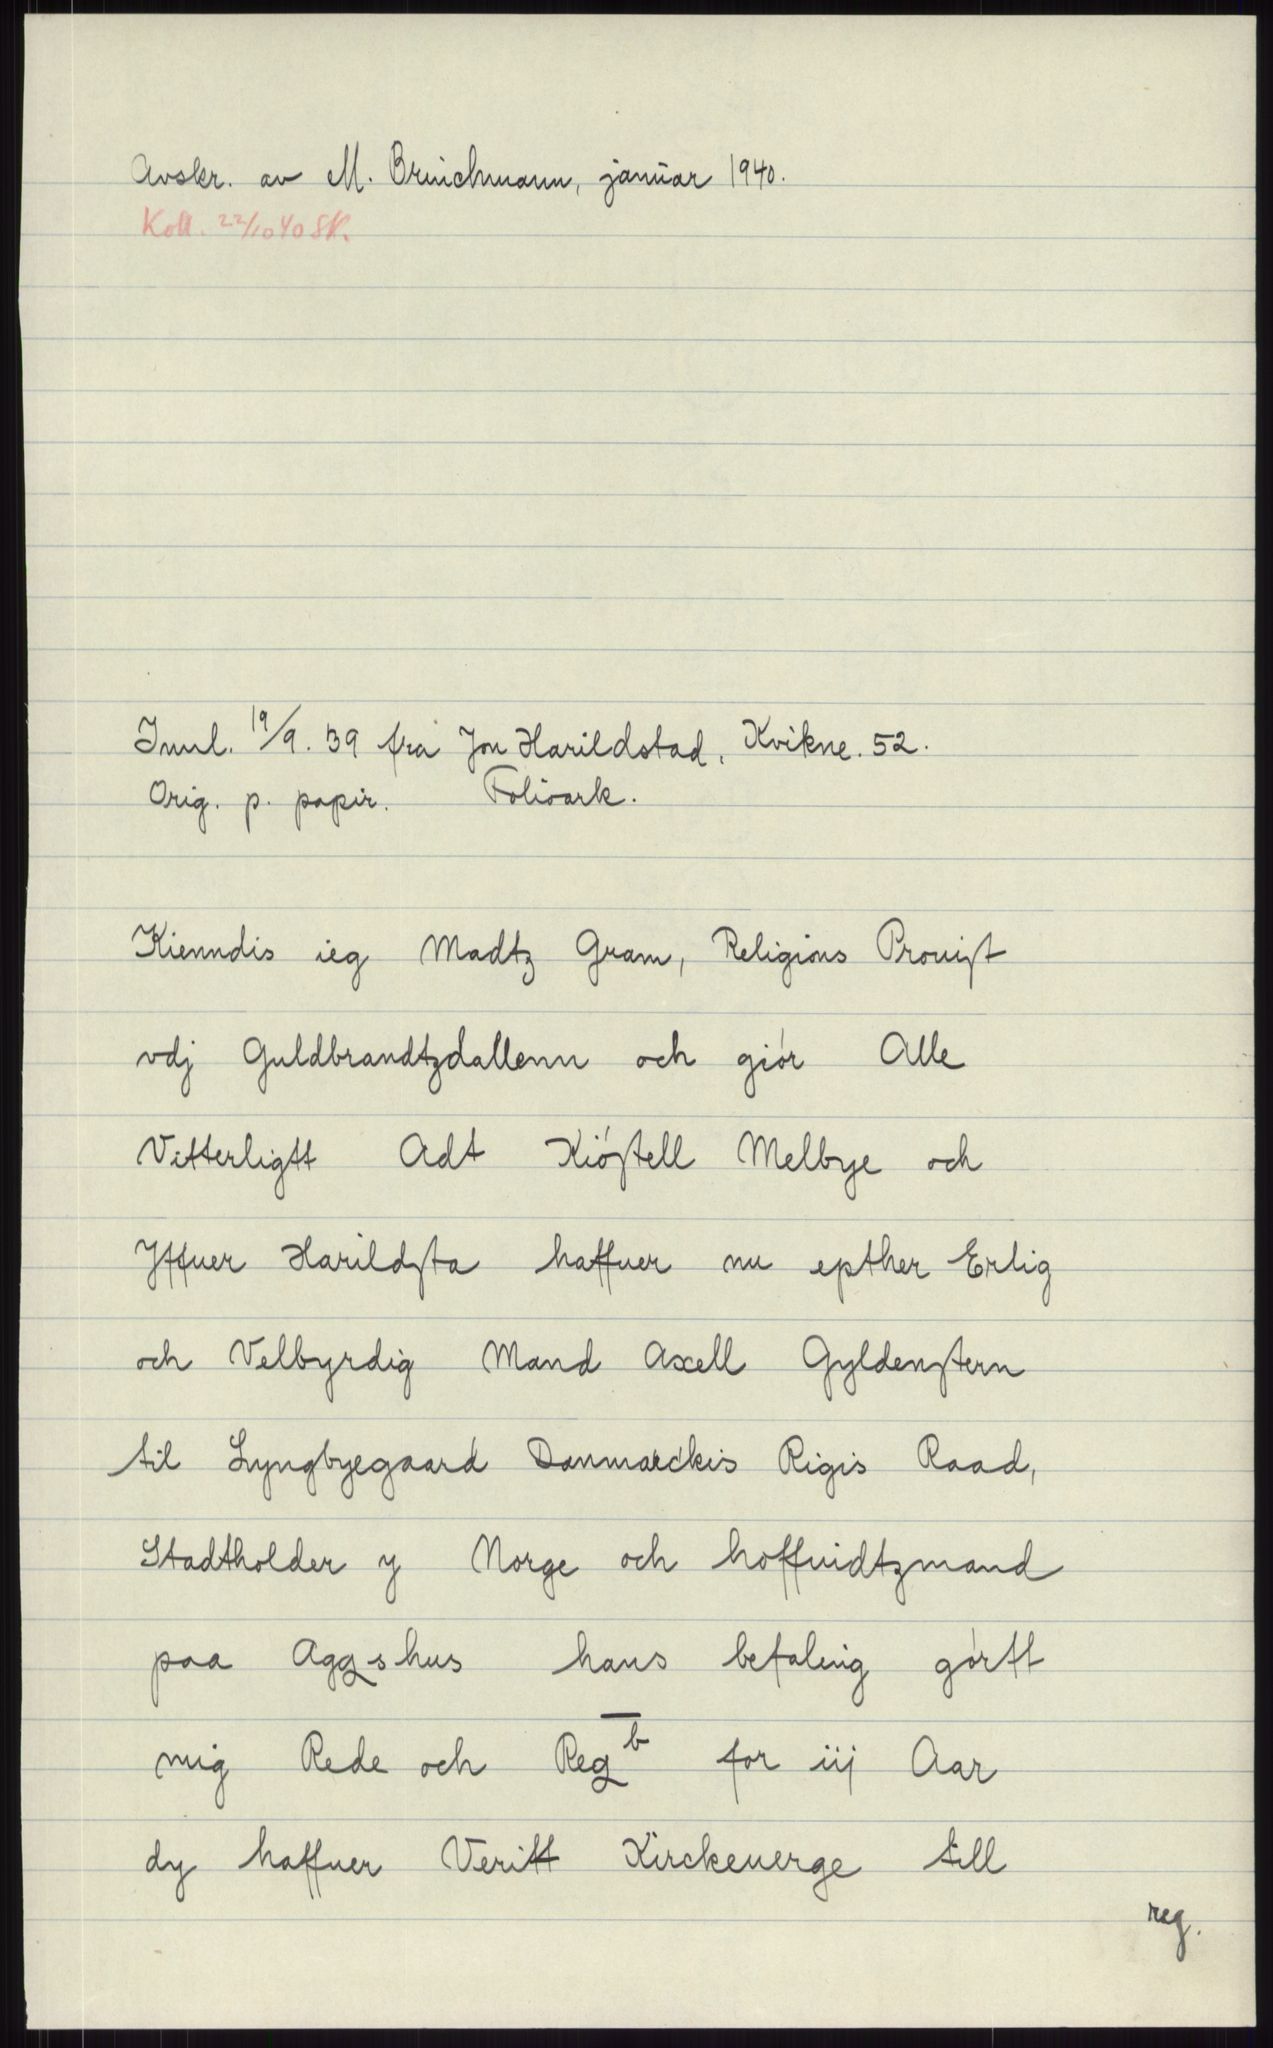 Avskr. av M. Brinchmann, januar 1940.
Koll. 22/10 40 SK.
Innl. 19/9. 39 fra Jon Harildstad, Kvikne. 52.
Orig. p. papir. Folioark.
Kienndis ieg Madtz Gram, Religions Prouist
vdj Guldbrandtzdallenn och giör Alle
Vitterligtt Adt Kiöstell Melbye och
Yffuer Harildsta haffuer nu epther Erlig
och Velbyrdig Mand Axell Gyldenstern
til Lyngbyegaard Danmarckis Rigis Raad,
Stadtholder y Norge och hoffuidtzmand
paa Aggshus hans befaling gørtt
mig Rede och Regb for iij Aar
dy haffuer Veritt Kirckeuerge till
reg.